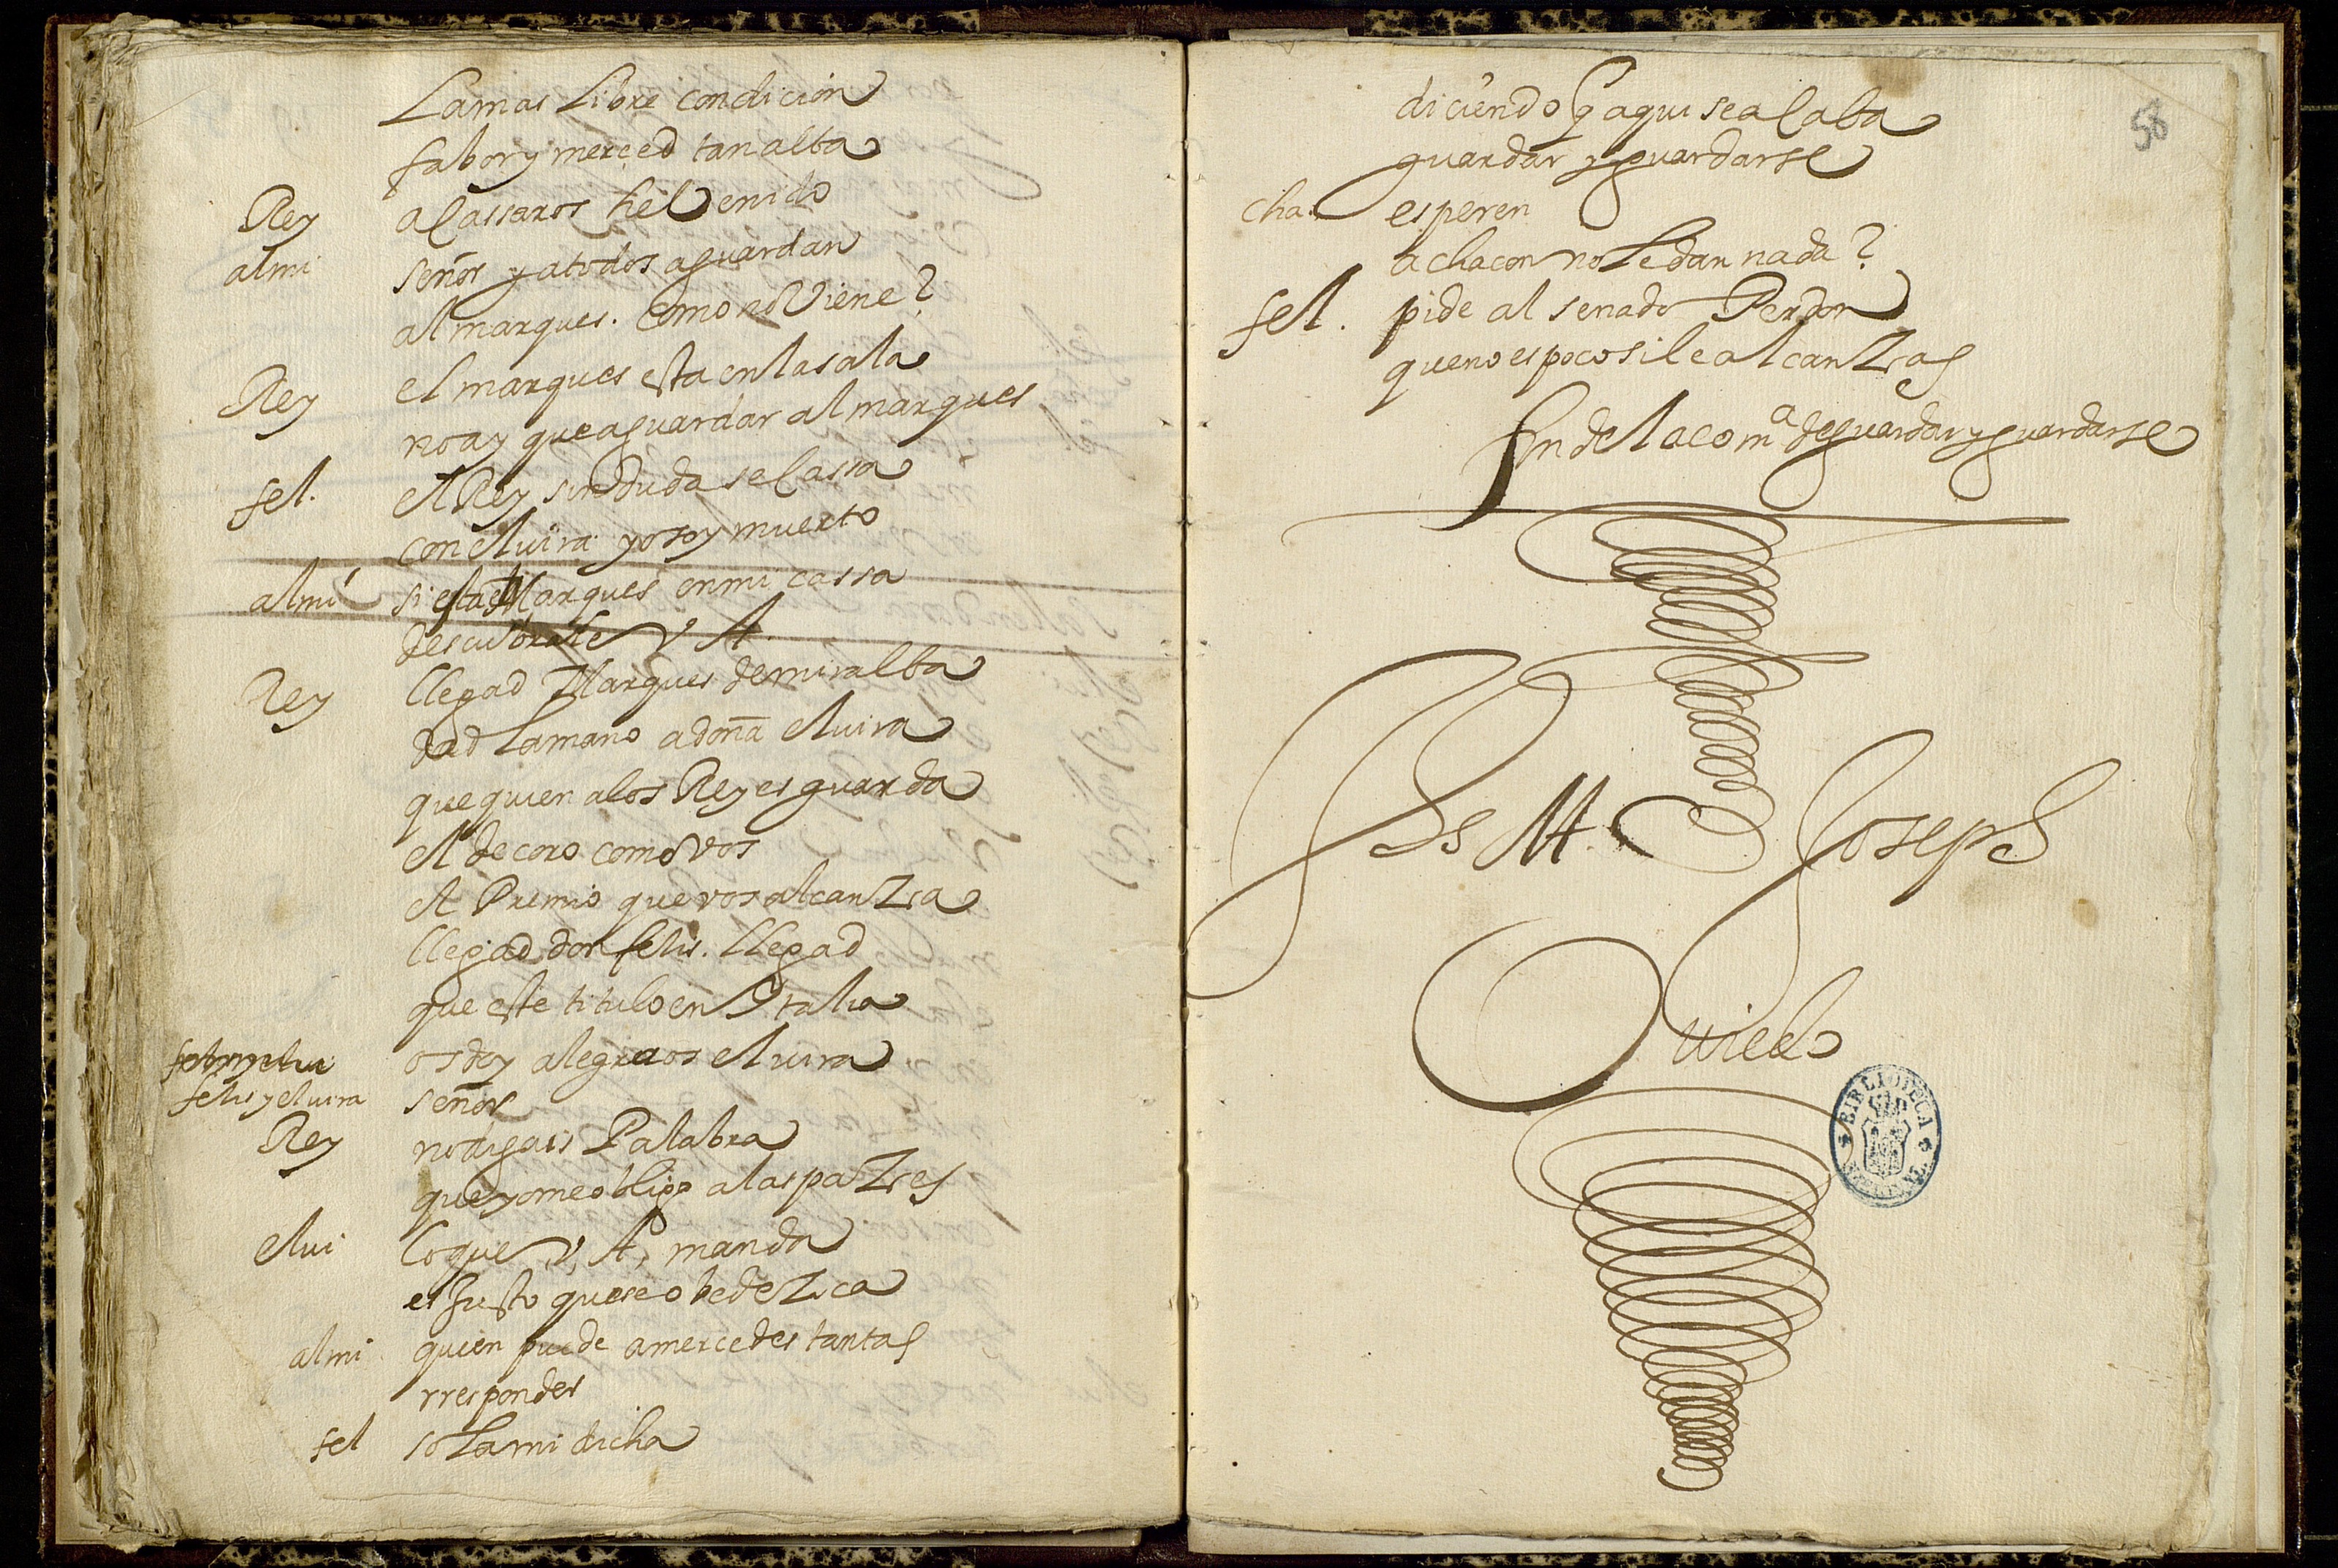 La mas libre condicion
fabor y merced tan alta
Rey a cassaros he venido
almi señor y a todos aguardan
al marques. Como no viene?
Rey el marques esta en la sala
no ay que aguardar al marques
fel. el Rey sin duda se cassa
con eluira yo soy muerto
almi si esta el Marques en mi cassa
descubrale V A.
Rey llegad Marques de miralba
dad la mano a doña eluira
que quien a los Reyes guarda
el decoro como vos
el Premio que vos alcanza
llegad don felis. llegad
que este titulo en Ytalia
os doy alegraos eluira
felis y eluira señor
Rey no digais Palabra
que yo me obligo a las pazes
elui lo que V, A, manda
es justo que se obedezca
almi quien puede a mercedes tantas
rresponder
fel sola mi dicha
58
diciendo q aqui se acaba
guardar y guardarse
cha. esperen
a chacon no le dan nada?
fel. pide al senado Perdon
que no es poco si le alcanzas
fin de la comª de guardar y guardarse
Jhs M. Joseph
Ouiedo
BIBLIOTECA NACIONAL